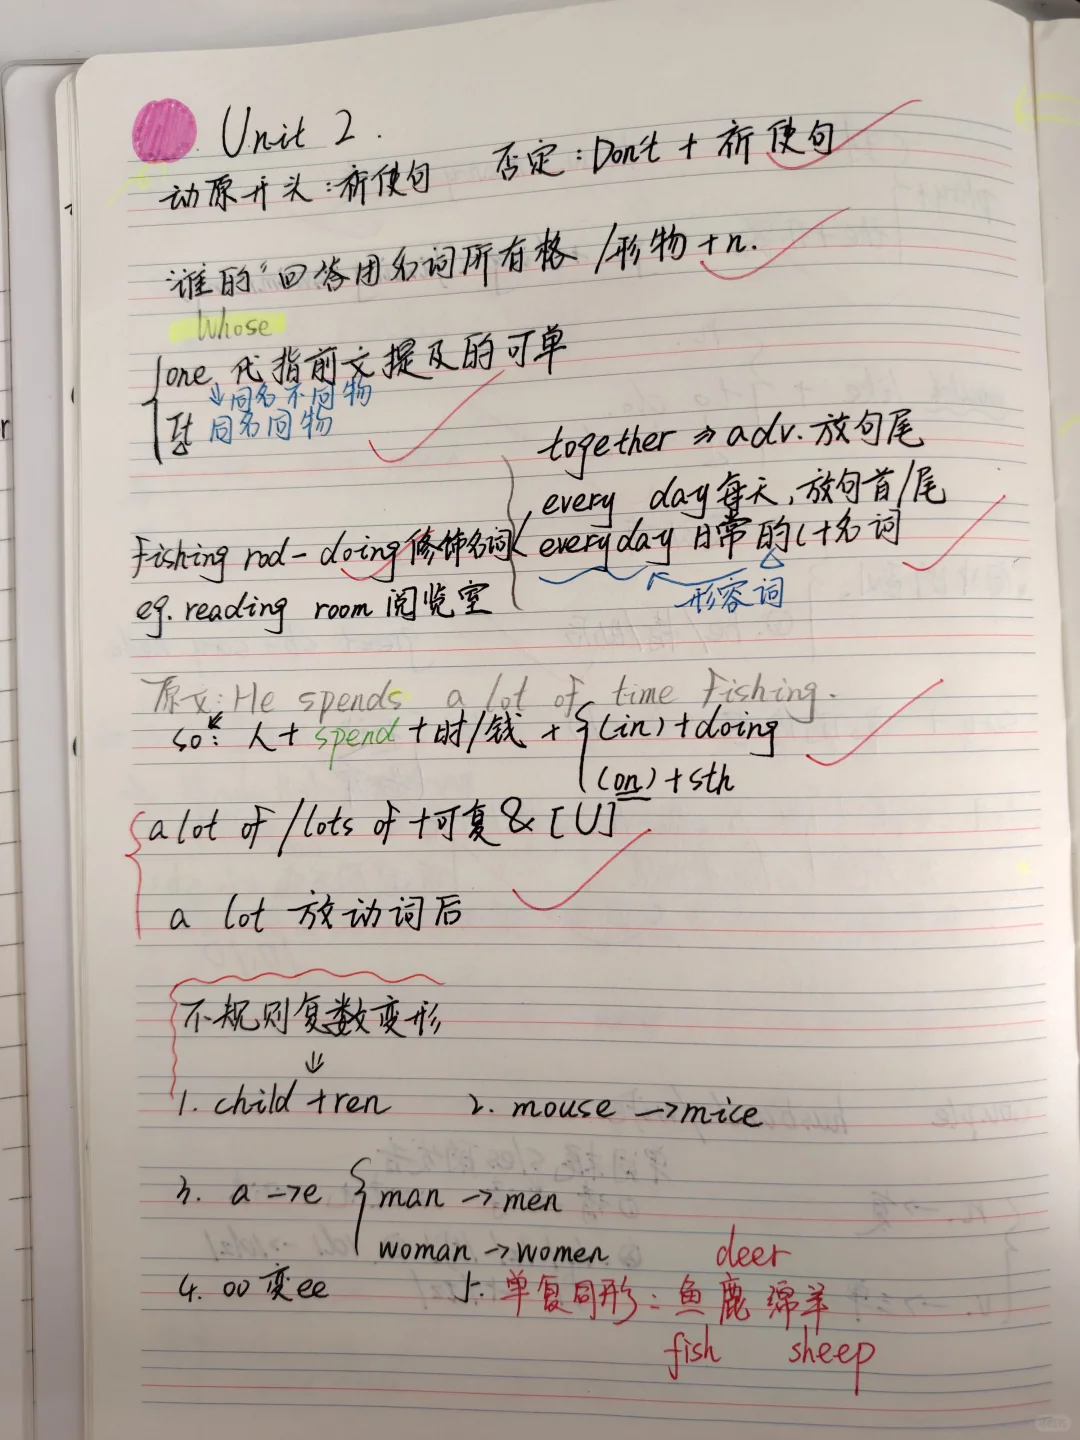 Unit 2.
动原开头:祈使句 否定:Don't + 祈使句
谁的"回答用名词所有格/形物+n.
Whose
one 代指前文提及的可单
↓同名不同物
It 同名同物
together ⇒ adv. 放句尾
every day每天,放句首/尾
Fishing rod-doing修饰名词 everyday 日常的(+名词
eg. reading room 阅览室 形容词
原文:He spends a lot of time Fishing.
so: 人+ spend +时/钱 + (in)+doing
(on)+sth
a lot of /lots of +可复 & [U]
a lot 放动词后
不规则复数变形
↓
1. child +ren 2. mouse → mice
3. a → e man → men
woman → women deer
4. oo 变ee 5. 单复同形:鱼 鹿 绵羊
fish sheep